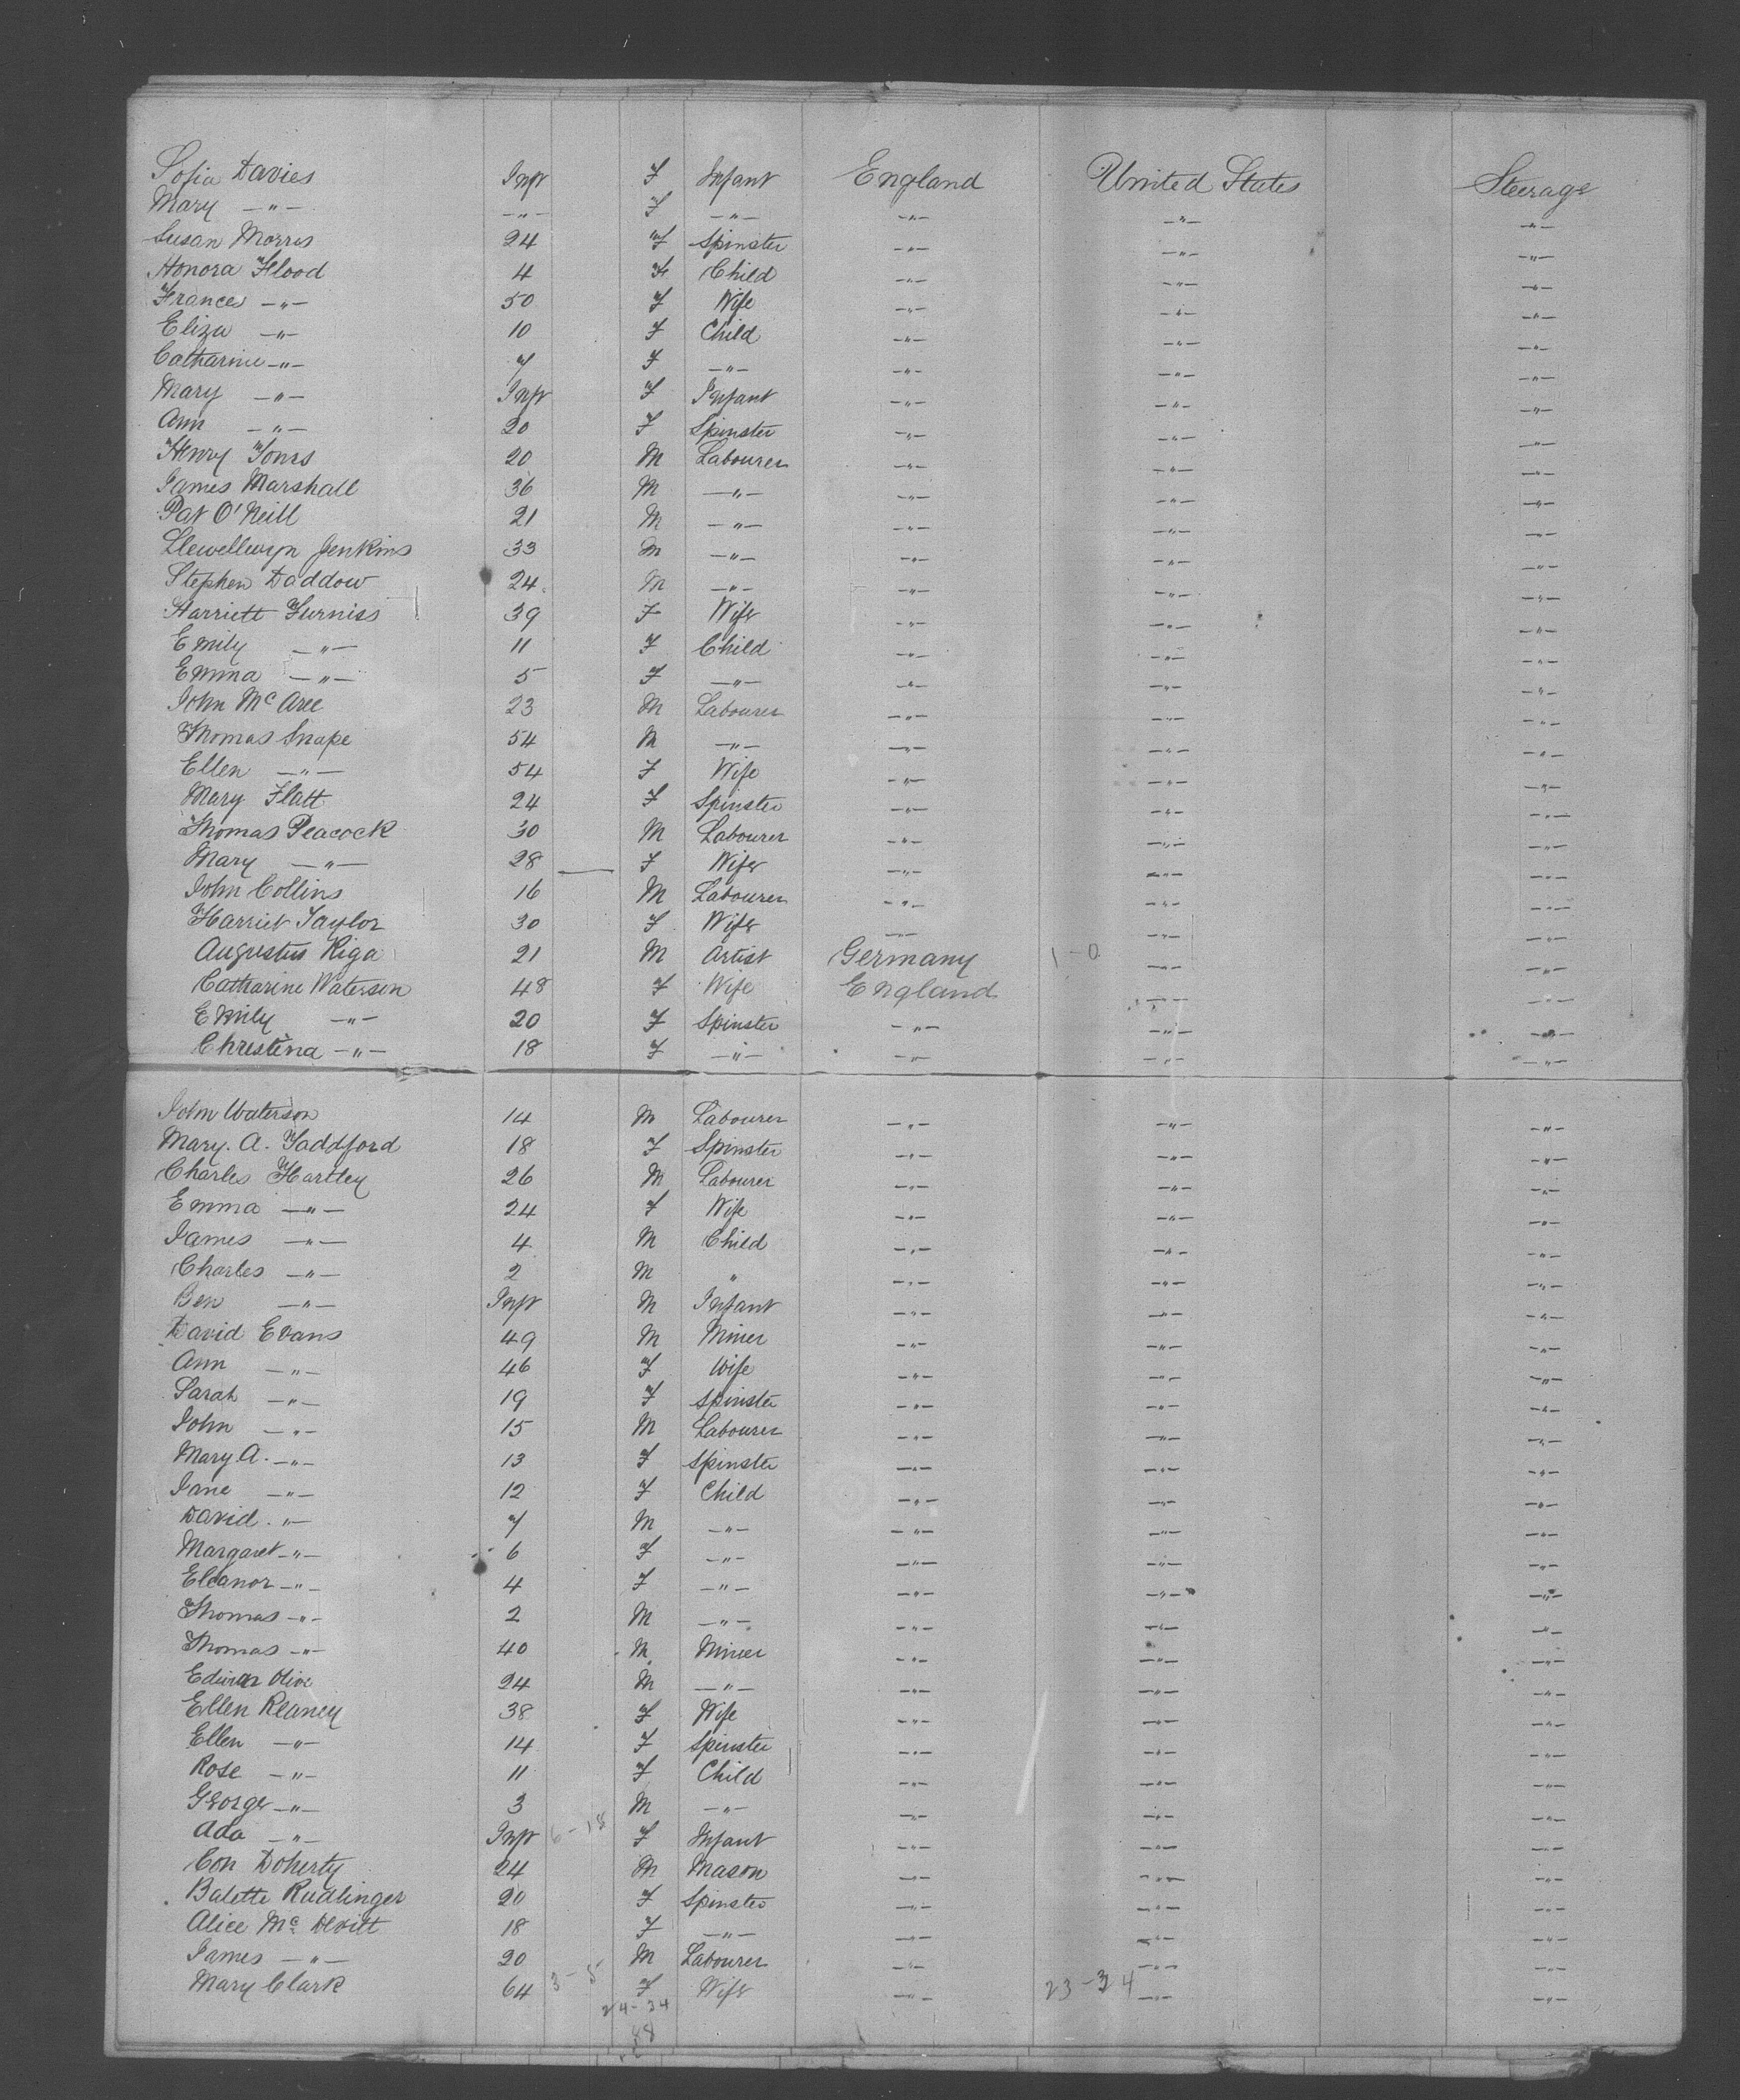 Sofia Davies Inft F Infant England United States Steerage
Mary —"— —"— F —"— —"— —"— —"—
Susan Morris 24 F Spinster —"— —"— —"—
Honora Flood 4 F Child —"— —"— —"—
Frances —"— 50 F Wife —"— —"— —"—
Eliza —"— 10 F Child —"— —"— —"—
Catharine —"— 7 F —"— —"— —"— —"—
Mary —"— Inft F Infant —"— —"— —"—
Ann —"— 20 F Spinster —"— —"— —"—
Henry Jones 20 M Labourer —"— —"— —"—
James Marshall 36 M —"— —"— —"— —"—
Pat O'Neill 21 M —"— —"— —"— —"—
Llewellwyn Jenkins 33 M —"— —"— —"— —"—
Stephen Daddow 24 M —"— —"— —"— —"—
Harriett Furniss 39 F Wife —"— —"— —"—
Emily —"— 11 F Child —"— —"— —"—
Emma —"— 5 F —"— —"— —"— —"—
John McAree 23 M Labourer —"— —"— —"—
Thomas Snape 54 M —"— —"— —"— —"—
Ellen —"— 54 F Wife —"— —"— —"—
Mary Flatt 24 F Spinster —"— —"— —"—
Thomas Peacock 30 M Labourer —"— —"— —"—
Mary —"— 28 F Wife —"— —"— —"—
John Collins 16 M Labourer —"— —"— —"—
Harriet Taylor 30 F Wife —"— —"— —"—
Augustus Riga 21 M Artist Germany 1-0 —"— —"—
Catharine Waterson 48 F Wife England —"— —"—
Emily —"— 20 F Spinster —"— —"— —"—
Christina —"— 18 F —"— —"— —"— —"—
John Waterson 14 M Labourer —"— —"— —"—
Mary. A. Taddford 18 F Spinster —"— —"— —"—
Charles Hartley 26 M Labourer —"— —"— —"—
Emma —"— 24 F Wife —"— —"— —"—
James —"— 4 M Child —"— —"— —"—
Charles —"— 2 M " —"— —"— —"—
Ben —"— Inft M Infant —"— —"— —"—
David Evans 49 M Miner —"— —"— —"—
Ann —"— 46 F Wife —"— —"— —"—
Sarah —"— 19 F Spinster —"— —"— —"—
John —"— 15 M Labourer —"— —"— —"—
Mary A. —"— 13 F Spinster —"— —"— —"—
Jane —"— 12 F Child —"— —"— —"—
David. "— 7 M —"— —"— —"— —"—
Margaret —"— 6 F —"— —"— —"— —"—
Eleanor —"— 4 F —"— —"— —"— —"—
Thomas —"— 2 M —"— —"— —"— —"—
Thomas —"— 40 M Miner —"— —"— —"—
Olive 24 M —"— —"— —"— —"—
Ellen Reaney 38 F Wife —"— —"— —"—
Ellen —"— 14 F Spinster —"— —"— —"—
Rose —"— 11 F Child —"— —"— —"—
George —"— 3 M —"— —"— —"— —"—
Ada —"— Inft 6-18 F Infant —"— —"— —"—
Con Doherty 24 M Mason —"— —"— —"—
Balette Rudlinger 20 F Spinster —"— —"— —"—
Alice Mc Devitt 18 F —"— —"— —"— —"—
James —"— 20 M Labourer —"— —"— —"—
Mary Clark 64 3-5 F Wife —"— 23-34 —"— —"—
24-34
88